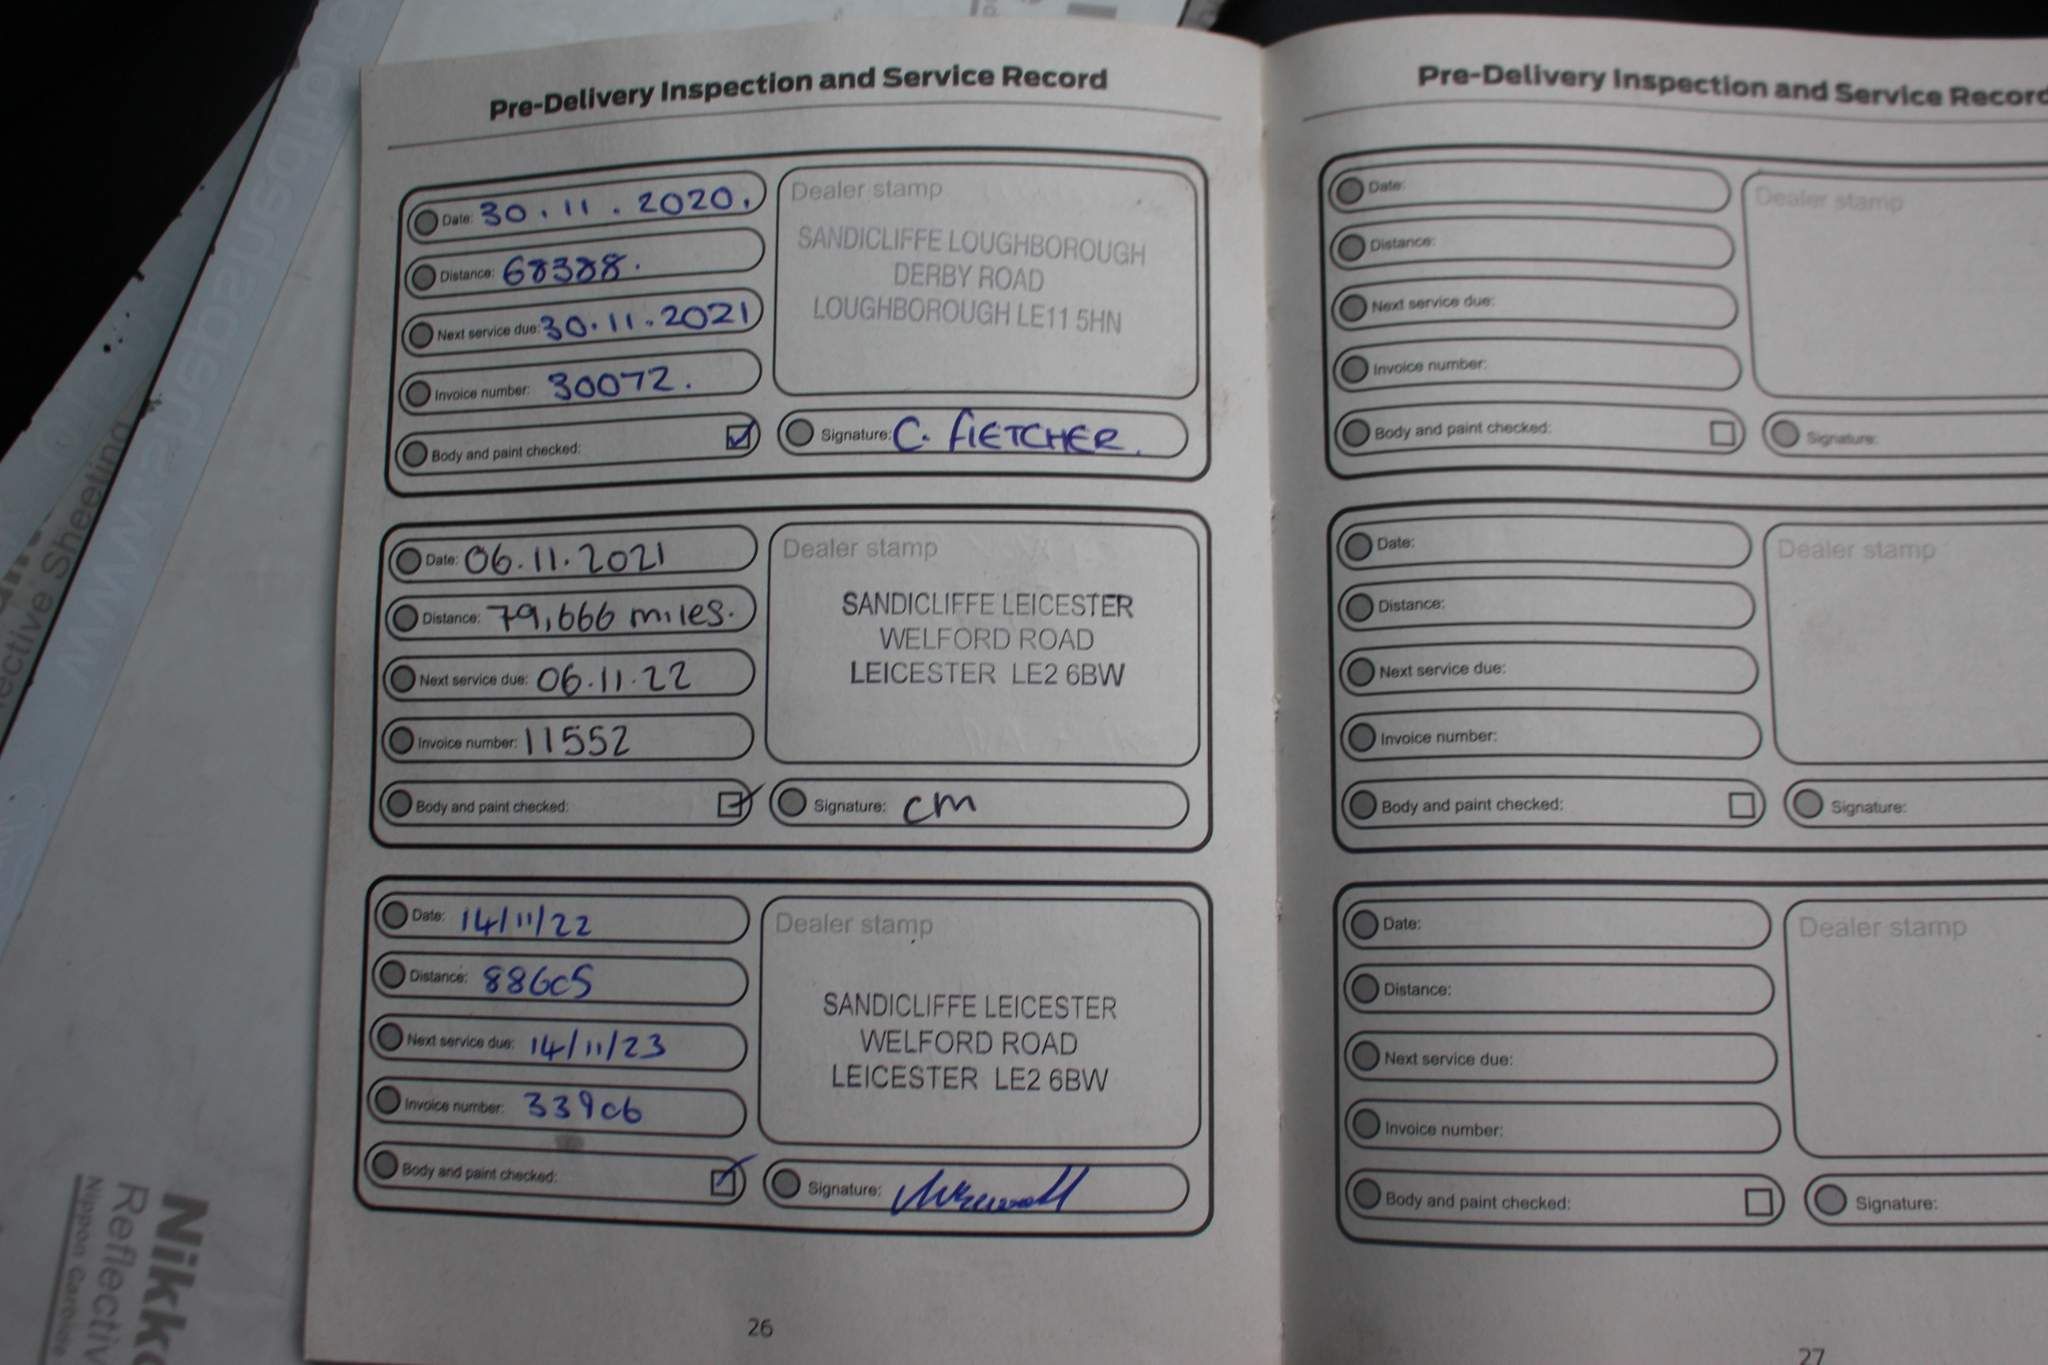 Pre-Delivery Inspection and Service Record
Date: 30.11.2020.
Distance: 68388.
Next service due: 30.11.2021
Invoice number: 30072.
Body and paint checked:
Dealer stamp
SANDICLIFFE LOUGHBOROUGH
DERBY ROAD
LOUGHBOROUGH LE11 5HN
Signature: C. FLETCHER.
Date: 06.11.2021
Distance: 79,666 miles.
Next service due: 06.11.22
Invoice number: 11552
Body and paint checked:
Dealer stamp
SANDICLIFFE LEICESTER
WELFORD ROAD
LEICESTER LE2 6BW
Signature: CM
Date: 14/11/22
Distance: 88605
Next service due: 14/11/23
Invoice number: 33906
Body and paint checked:
Dealer stamp
SANDICLIFFE LEICESTER
WELFORD ROAD
LEICESTER LE2 6BW
Signature:
26
Pre-Delivery Inspection and Service Record
Date:
Distance:
Next service due:
Invoice number:
Body and paint checked:
Dealer stamp
Signature:
Date:
Distance:
Next service due:
Invoice number:
Body and paint checked:
Dealer stamp
Signature:
Date:
Distance:
Next service due:
Invoice number:
Body and paint checked:
Dealer stamp
Signature:
27
Reflective Sheeting
Nikk
Reflectiv
Nippon Carbide